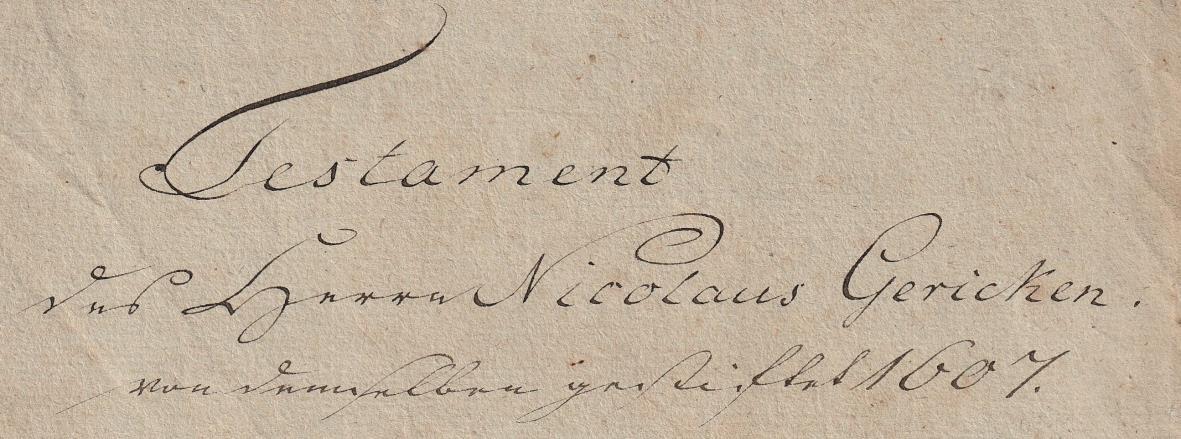 Testament
des Herrn Nicolaus Gericken.
von demselben gestiftet 1607.